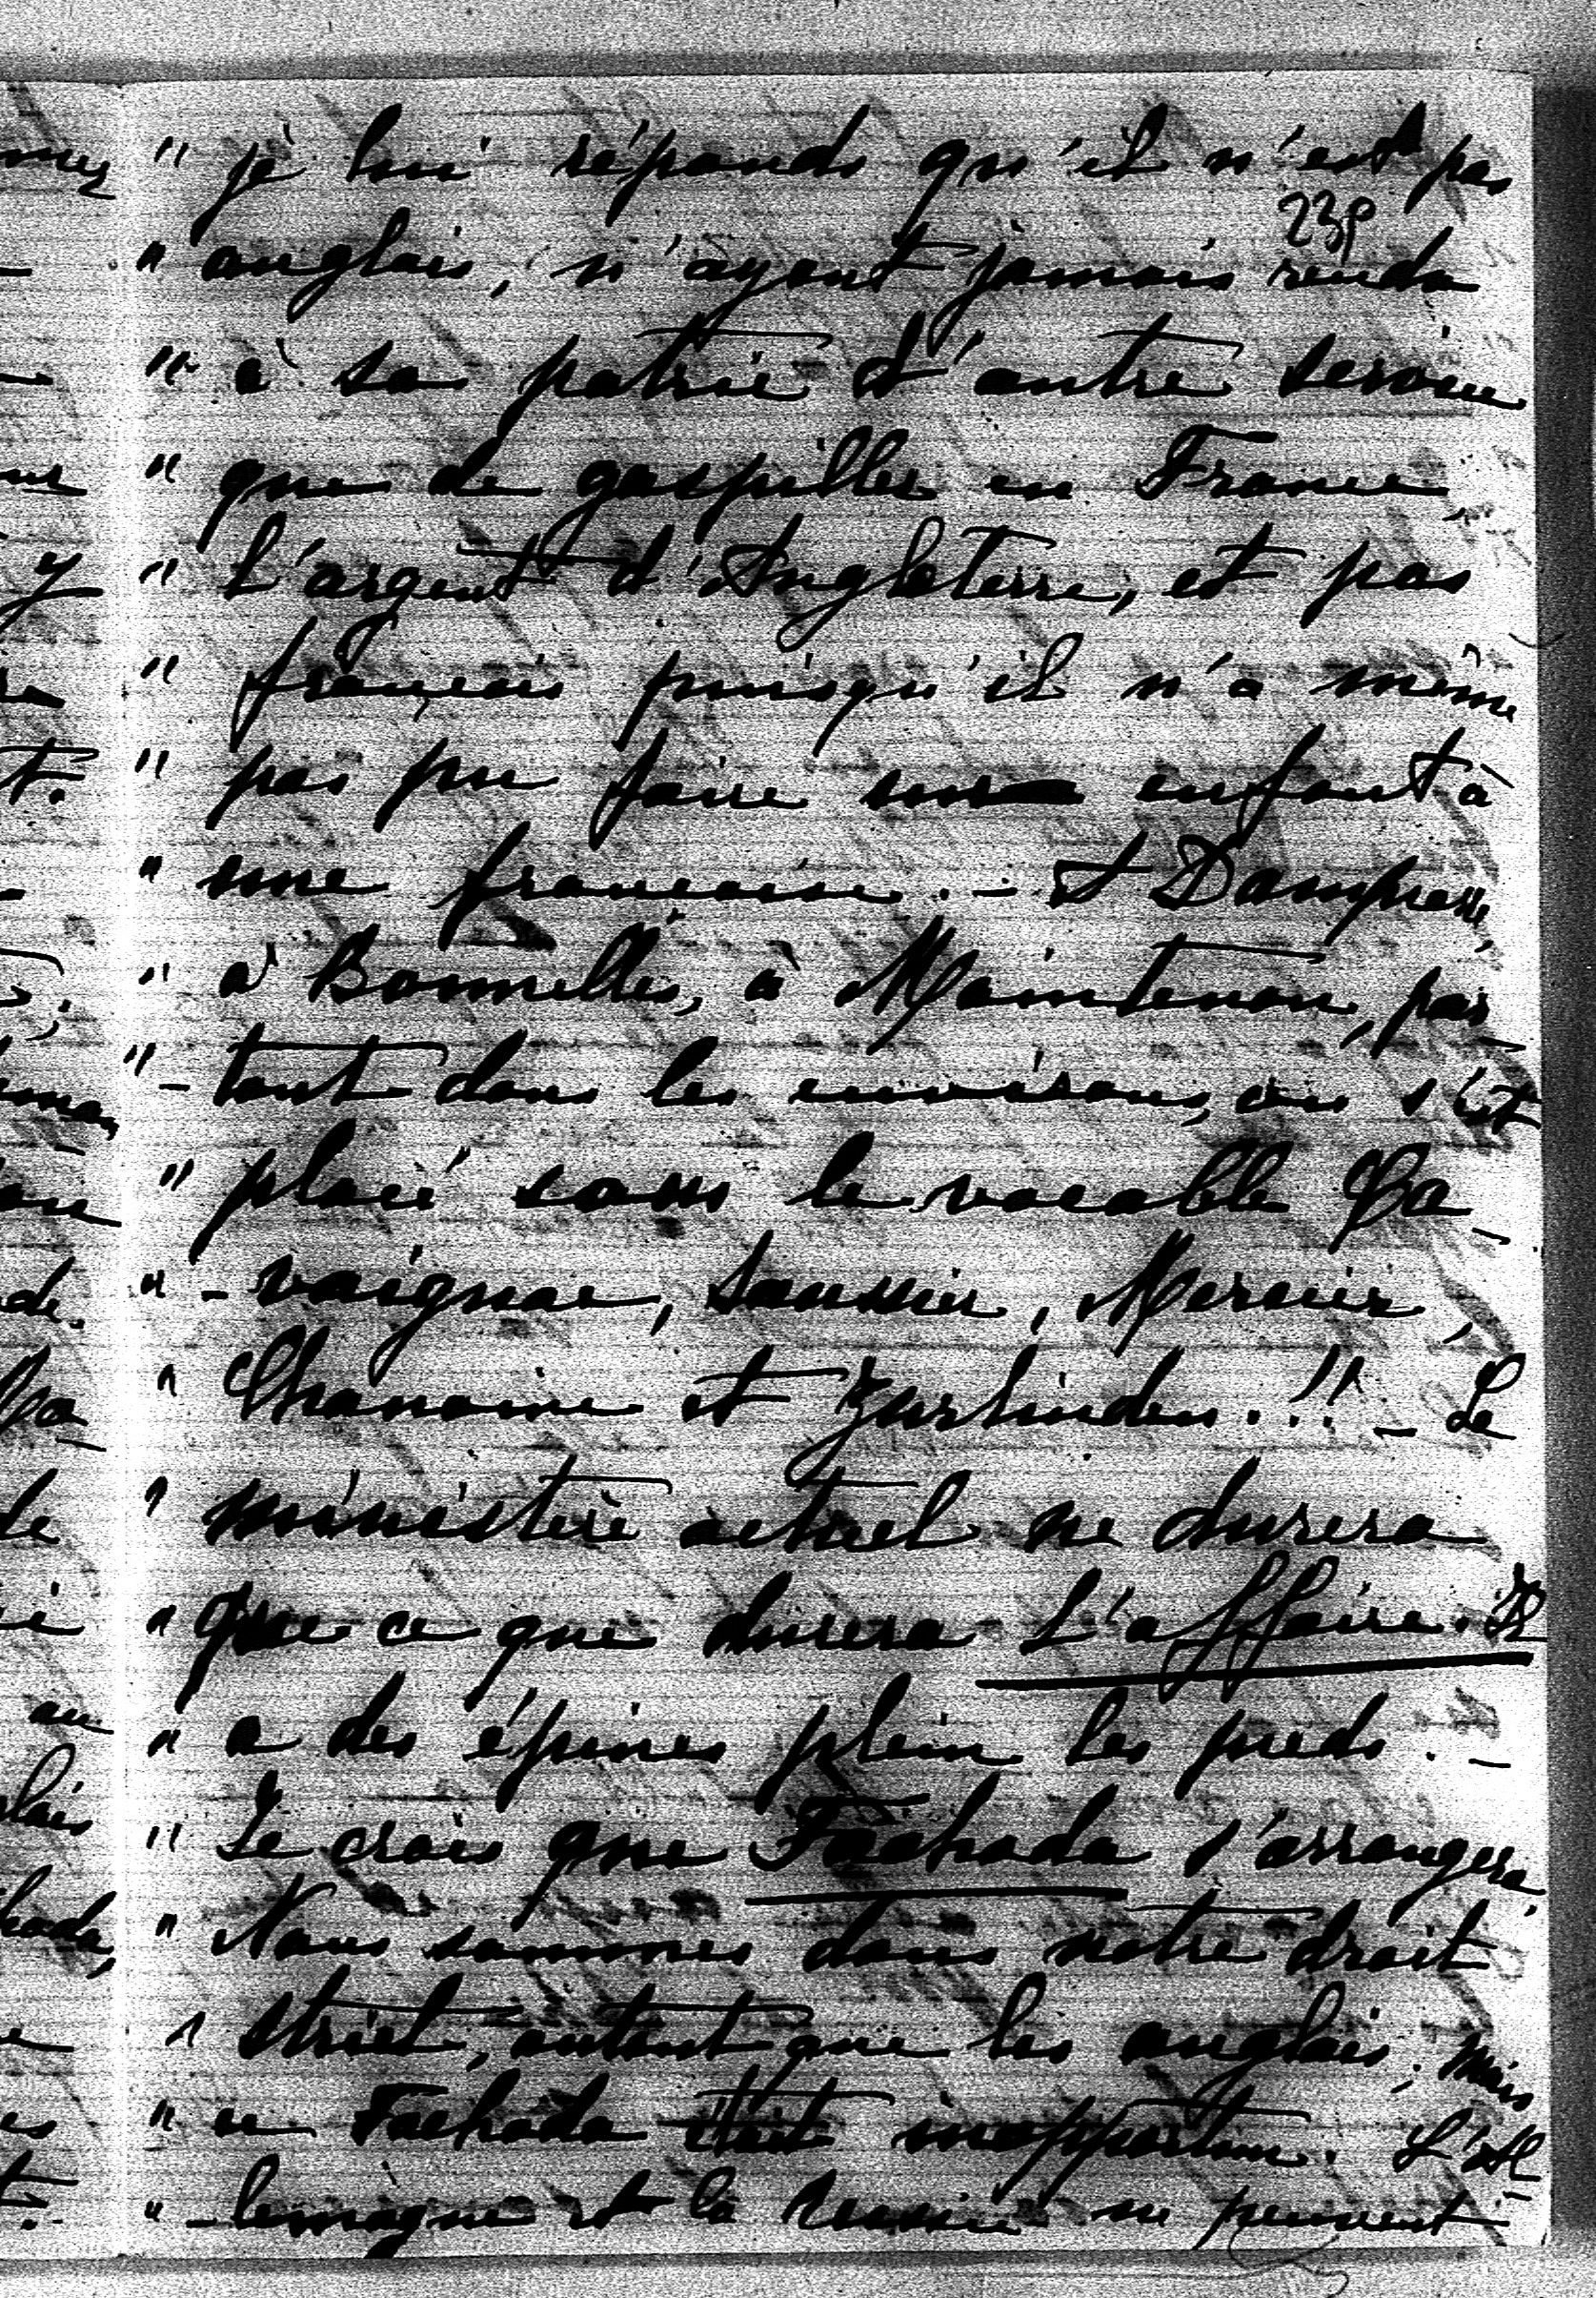 " je lui réponds qu'il n'est pas
238
" anglais, n'ayant jamais rendu
" à sa patrie d'autre service
" que de gaspiller en France,
" l'argent d'Angleterre, et pas
" français puisqu'il n'a même
" pas pu faire un enfant à
" une française. — A Dampierre,
" à Bonnelles, à Maintenon, par-
" -tout dans les environs, on s'est
" placé sous le vocable Ca-
" -vaignac, Saussier, Mercier,
" Chanoine et Zurlinden.!! — Le
" ministère actuel ne durera
" que ce que durera l'affaire. Il
" a des épines plein les pieds. —
" Je crois que Fachoda s'arrangera.
" Nous sommes dans notre droit
" strict, autant que les anglais; mais
" ce Fachoda était inopportun. L'Al-
" -lemagne et la Russie ne peuvent